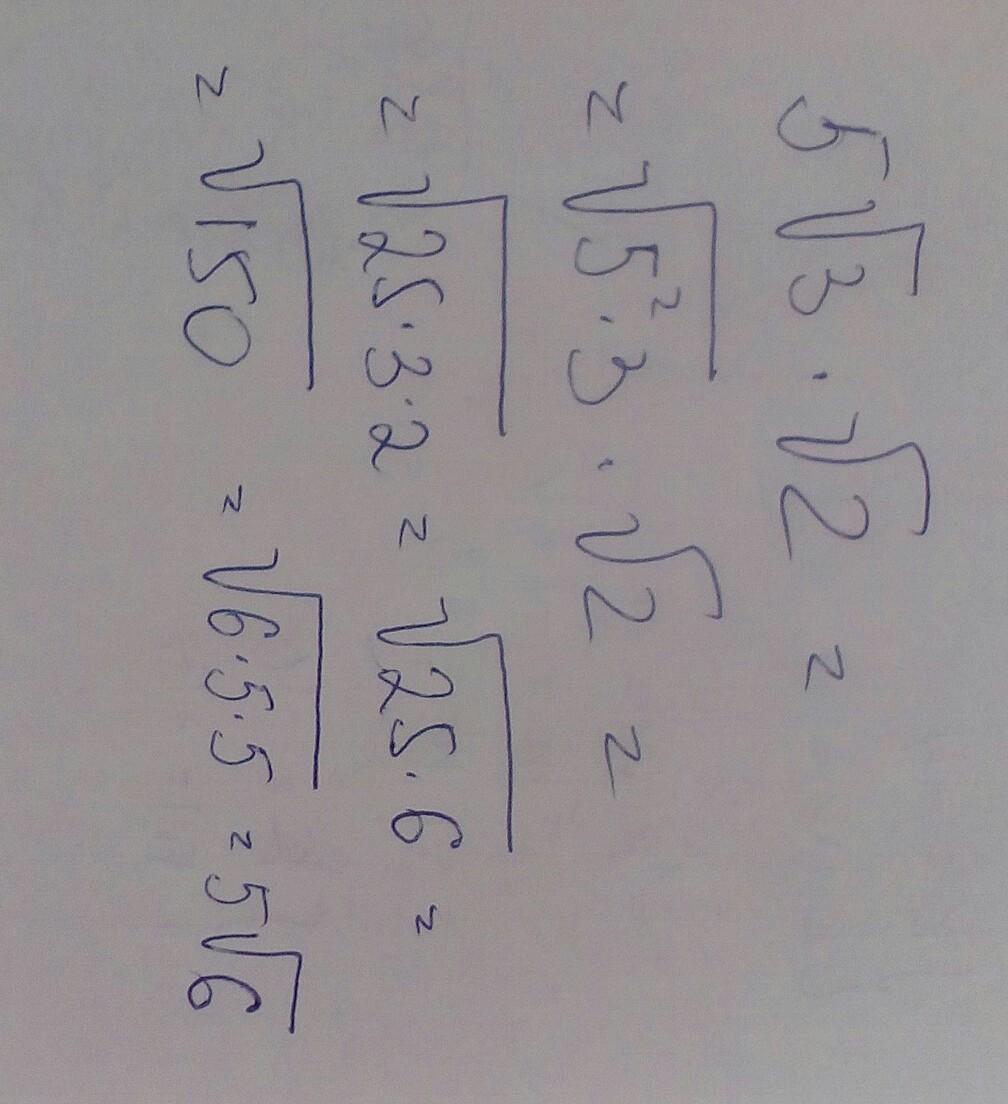 5√3 · √2 =
= √5² · 3 · √2 =
= √25 · 3 · 2 = √25 · 6 =
= √150 = √6 · 5 · 5 = 5√6